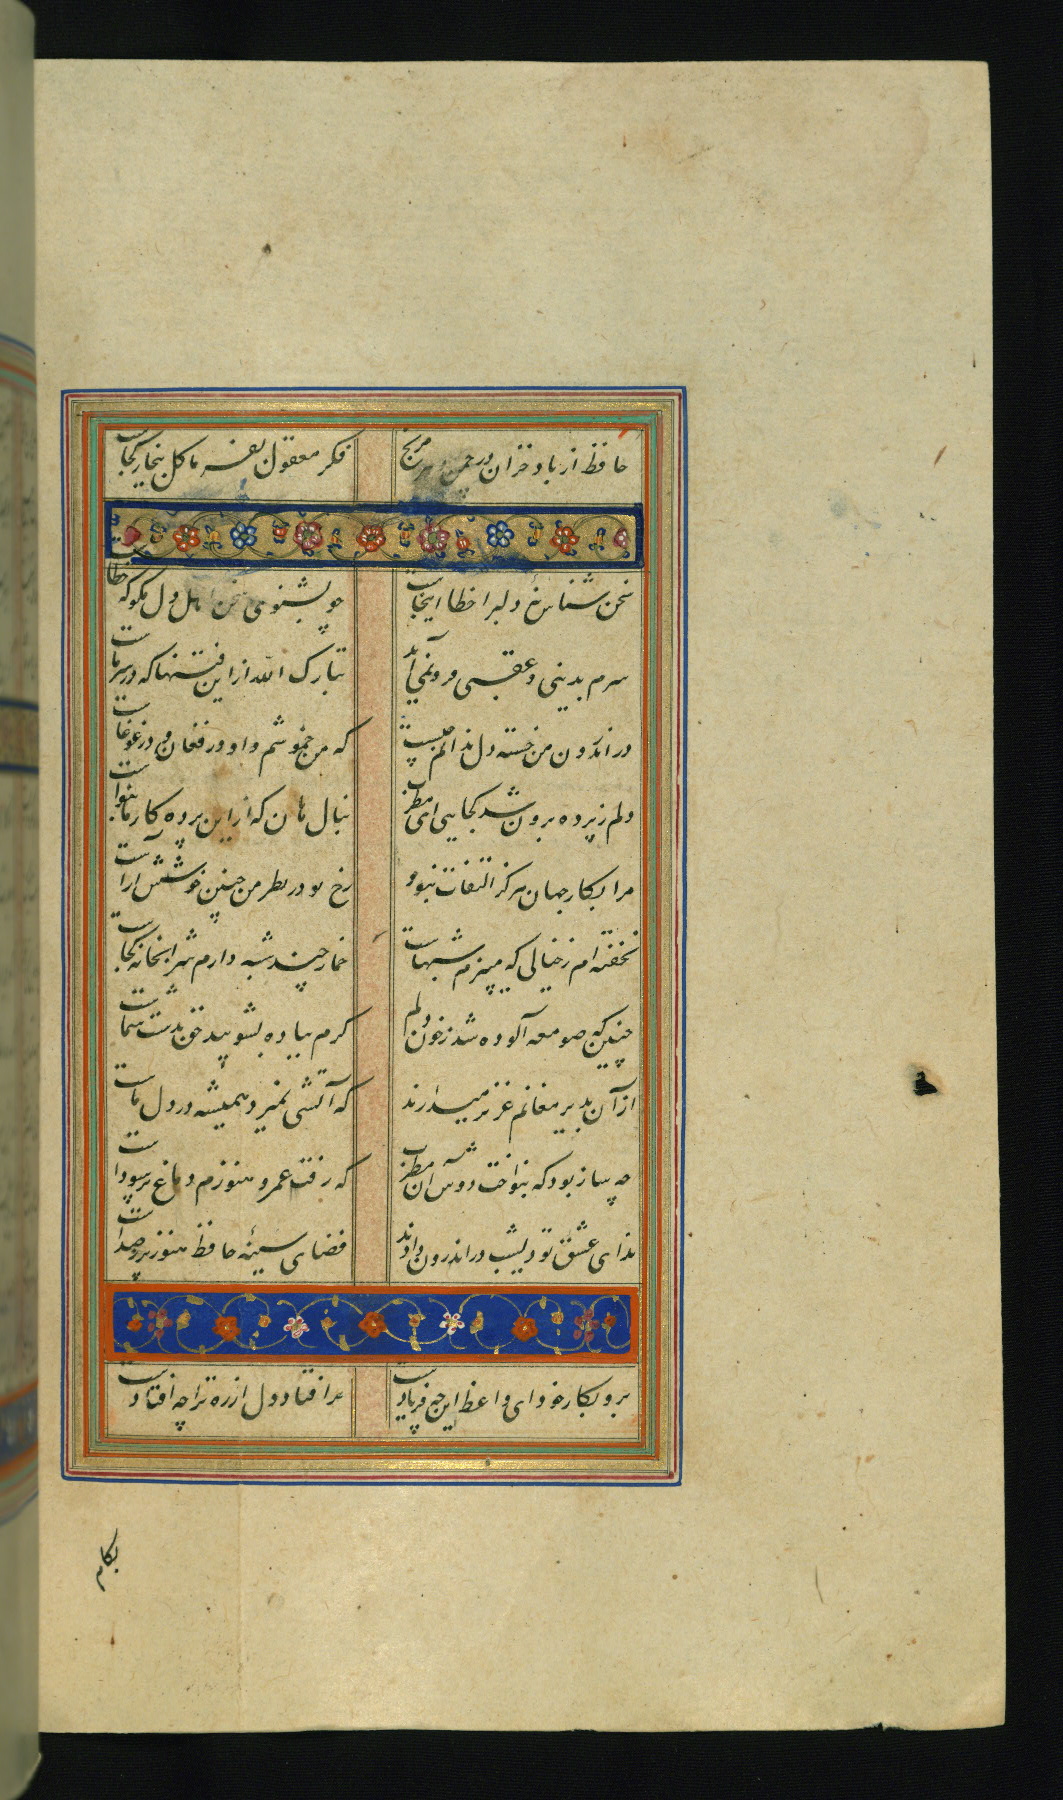 حافظ از باد خزان در چمن دهر مرنج فکر معقول بفرما گل بیخار کجاست
سخن شناس نهٔ دلبرا خطا اینجاست چو بشنوی سخن اهل دل مگو که خطاست
سرم بدینی و عقبی فرو نمی آید تبارک الله از این فتنها که در سر ماست
در اندرون من خسته دل ندانم چیست که من خموشم و او در فغان و در غوغاست
دلم ز پرده برون شد کجایی ای مطرب بنال هان که از این پرده کار ما بنواست
مرا بکار جهان هرگز التفات نبود رخ تو در نظر من چنین خوشش آراست
نخفته ام ز خیالی که میپزم شبهاست خمار چند شبه دارم شرابخانه کجاست
چنین که صومعه آلوده شد ز خون دلم گرم بباده بشویید حق بدست شماست
از آن بدیر مغانم عزیز میدارند که آتشی که نمیرد همیشه در دل ماست
چه ساز بود که بنواخت دوش آن مطرب که رفت عمر و هنوزم دماغ پر سوداست
ندای عشق تو دیشب در اندرون دادند فضای سینهٔ حافظ هنوز پر ز صداست
برو بکار خود ای واعظ این چه فریادست مرا فتاد دل از ره ترا چه افتادست
بکام